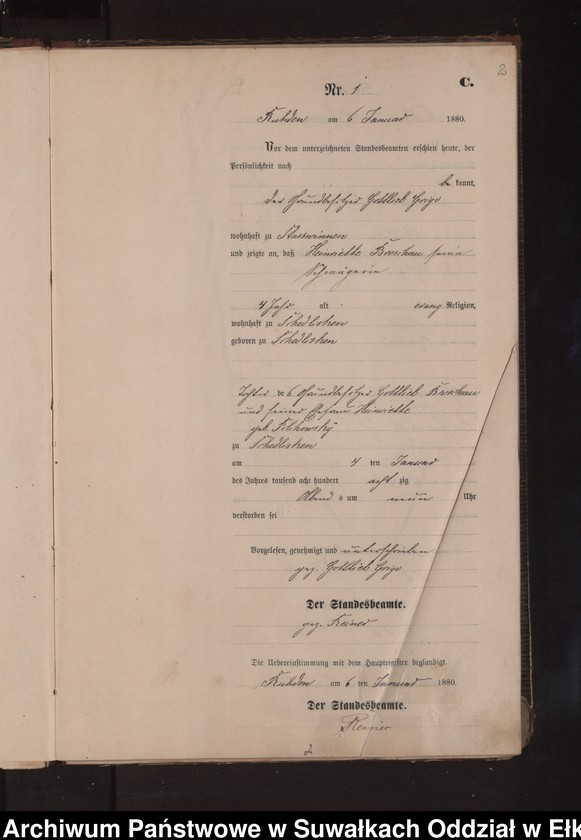 2
C.
Nr. 1
am 6 Januar 1880.
Vor dem unterzeichneten Standesbeamten erschien heute, der
Persönlichkeit nach
be kannt,
der Grundbesitzer Gottlieb Grigo
wohnhaft zu
und zeigte an, daß Heinriette Broschau seine
Schwägerin
4 Jahr alt evang Religion,
wohnhaft zu Schedlisken
geboren zu Schedlisken
Tochter des Grundbesitzer Gottlieb Broschau
und seiner Ehefrau Heinriette
geb.
zu Schedlisken
am 4 ten Januar
des Jahres tausend acht hundert acht zig
Abend s um neun Uhr
verstorben sei
Vorgelesen, genehmigt und unterschrieben
gez. Gottlieb Grigo
Der Standesbeamte.
gez. Reiner
Die Uebereinstimmung mit dem Hauptregister beglaubigt.
am 6 ten Januar 1880.
Der Standesbeamte.
Reiner
2
Archiwum Państwowe w Suwałkach Oddział w Ełk